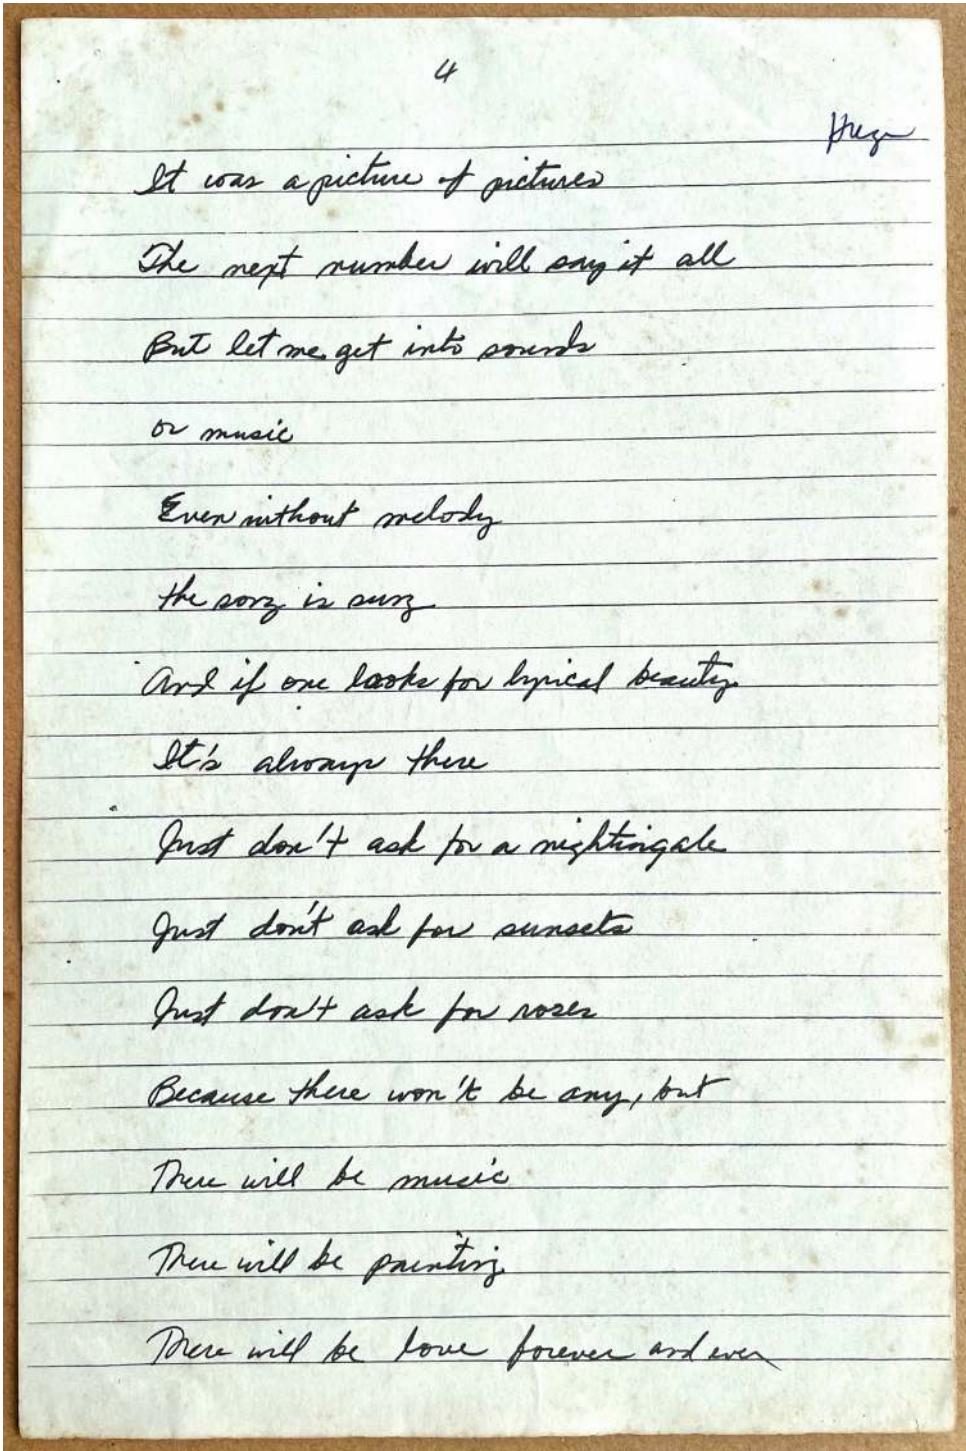 4
It was a picture of pictures
The next number will say it all
But let me get into sounds
or music
Even without melody
the song is sung
And if one looks for lyrical beauty
It's always there
Just don't ask for a nightingale
Just don't ask for sunsets
Just don't ask for roses
Because there won't be any, but
There will be music
There will be painting
There will be love forever and ever